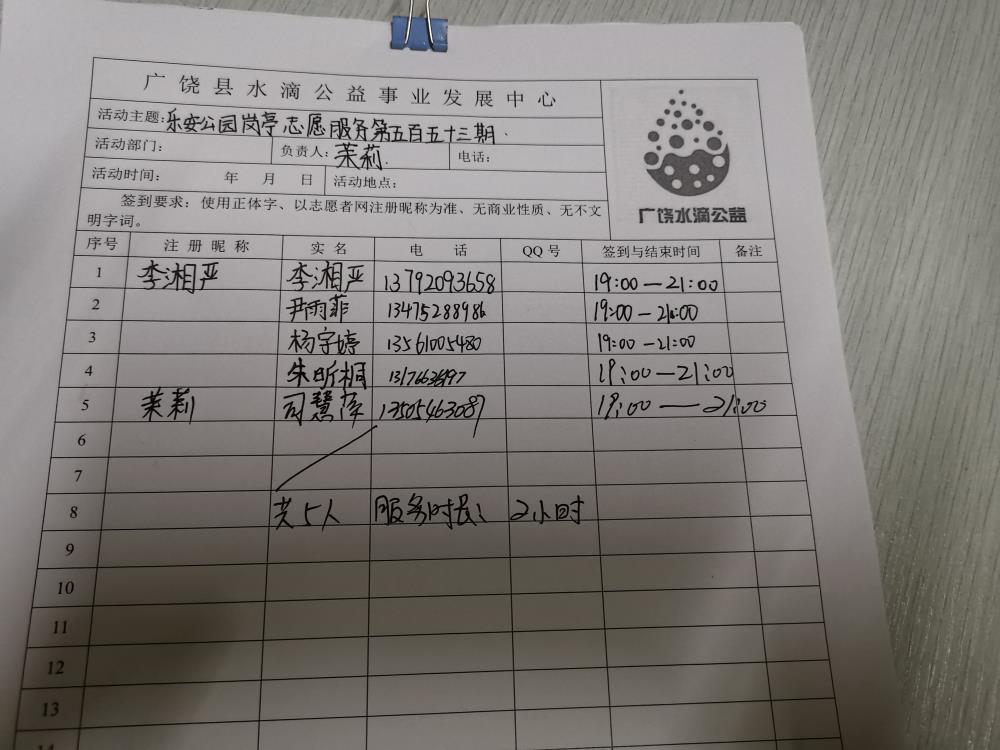 广饶县水滴公益事业发展中心
活动主题:乐安公园岗亭志愿服务第五百五十三期.
活动部门: 负责人:茉莉. 电话:
活动时间: 年 月 日 活动地点:
签到要求:使用正体字、以志愿者网注册昵称为准、无商业性质、无不文
明字词。
广饶水滴公益
序号 注册昵称 实名 电话 QQ号 签到与结束时间 备注
1 李湘严 李湘严 13792093658 19:00—21:00
2 尹雨菲 13475288986 19:00—21:00
3 杨字婷 13561005480 19:00—21:00
4 朱昕桐 19:00—21:00
5 茉莉 司慧萍 13505463087 19:00—21:00
6
7
8 共5人 服务时长: 2小时
9
10
11
12
13
14